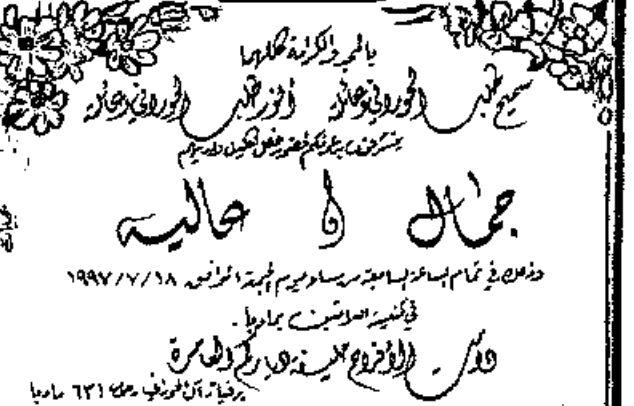 بالمجد والكرامة كللهما
سميح طلب الحوراني وعائلته أنور طلب الحوراني وعائلته
يتشرفون بدعوتكم لحضور حفل إكليل ولديهم
جمال و عالية
وذلك في تمام الساعة السابعة من مساء يوم الجمعة الموافق ١٩٩٧/٧/١٨
في كنيسة اللاتين بمادبا.
دامت الأفراح حليفة دياركم العامرة
برقيا: آل الحوراني ص.ب ٦٣١ مادبا